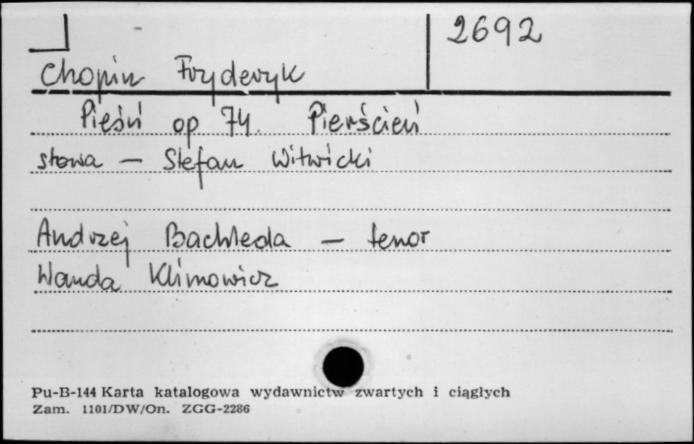 2692
Chopin Fryderyk
Pieśń op 74. Pierścień
słowa – Stefan Witwicki
Andrzej Bachleda – tenor
Wanda Klimowicz
Pu-B-144 Karta katalogowa wydawnictw zwartych i ciągłych
Zam. 1101/DW/On. ZGG-2286